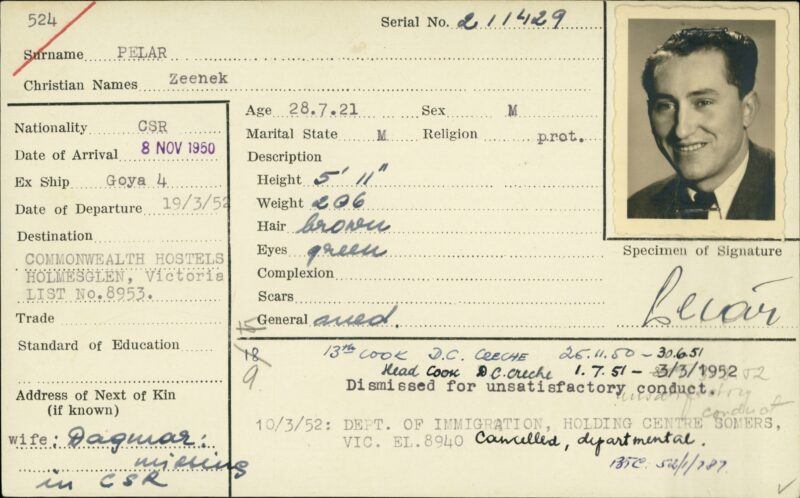 524
Serial No. 211429
Surname PELAR
Christian Names Zeenek
Nationality CSR
Date of Arrival 8 NOV 1950
Ex Ship Goya 4
Date of Departure 19/3/52
Destination
COMMONWEALTH HOSTELS
HOLMESGLEN, Victoria
LIST No.8953.
Trade
Standard of Education
Address of Next of Kin
(if known)
wife: Dagmar:
missing
in CSR
Age 28.7.21 Sex M
Marital State M Religion prot.
Description
Height 5' 11"
Weight 206
Hair brown
Eyes green
Complexion
Scars
General
Specimen of Signature
18/9
13th Cook D.C. Creche 25.11.50 - 30.6.51
Head Cook D.C. creche 1.7.51 - 3/3/1952
Dismissed for unsatisfactory conduct.
unsatisfactory
conduct
10/3/52: DEPT. OF IMMIGRATION, HOLDING CENTRE SOMERS,
VIC. EL.8940 Cancelled, departmental.
52/1/787.